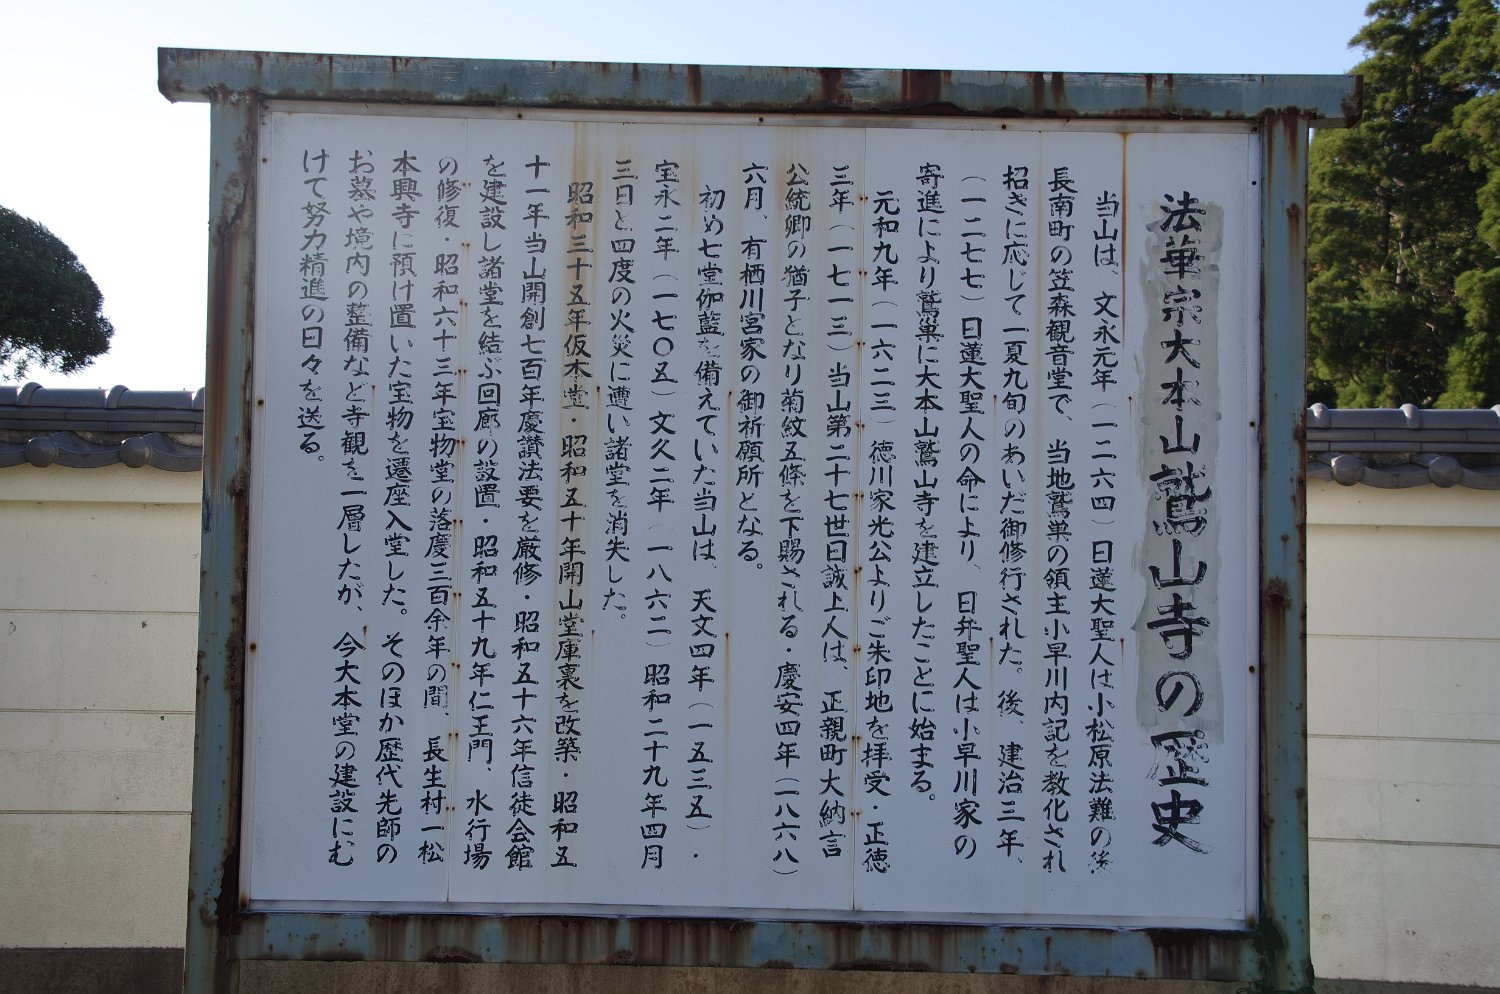 法華宗大本山鷲山寺の歴史
当山は、文永元年（一二六四）日蓮大聖人は小松原法難の後
長南町の笠森観音堂で、当地鷲巣の領主小早川内記を教化され
招きに応じて一夏九旬のあいだ御修行された。後、建治三年、
（一二七七）日蓮大聖人の命により、日弁聖人は小早川家の
寄進により鷲巣に大本山鷲山寺を建立したことに始まる。
元和九年（一六二三）徳川家光公よりご朱印地を拝受・正徳
三年（一七一三）当山第二十七世日誠上人は、正親町大納言
公統卿の猶子となり菊紋五條を下賜される・慶安四年（一八六八）
六月、有栖川宮家の御祈願所となる。
初め七堂伽藍を備えていた当山は、天文四年（一五三五）・
宝永二年（一七〇五）文久二年（一八六二）昭和二十九年四月
三日と四度の火災に遭い諸堂を消失した。
昭和三十五年仮本堂・昭和五十年開山堂庫裏を改築・昭和五
十一年当山開創七百年慶讃法要を厳修・昭和五十六年信徒会館
を建設し諸堂を結ぶ回廊の設置・昭和五十九年仁王門、水行場
の修復・昭和六十三年宝物堂の落慶三百余年の間、長生村一松
本興寺に預け置いた宝物を遷座入堂した。そのほか歴代先師の
お墓や境内の整備など寺観を一層したが、今大本堂の建設にむ
けて努力精進の日々を送る。